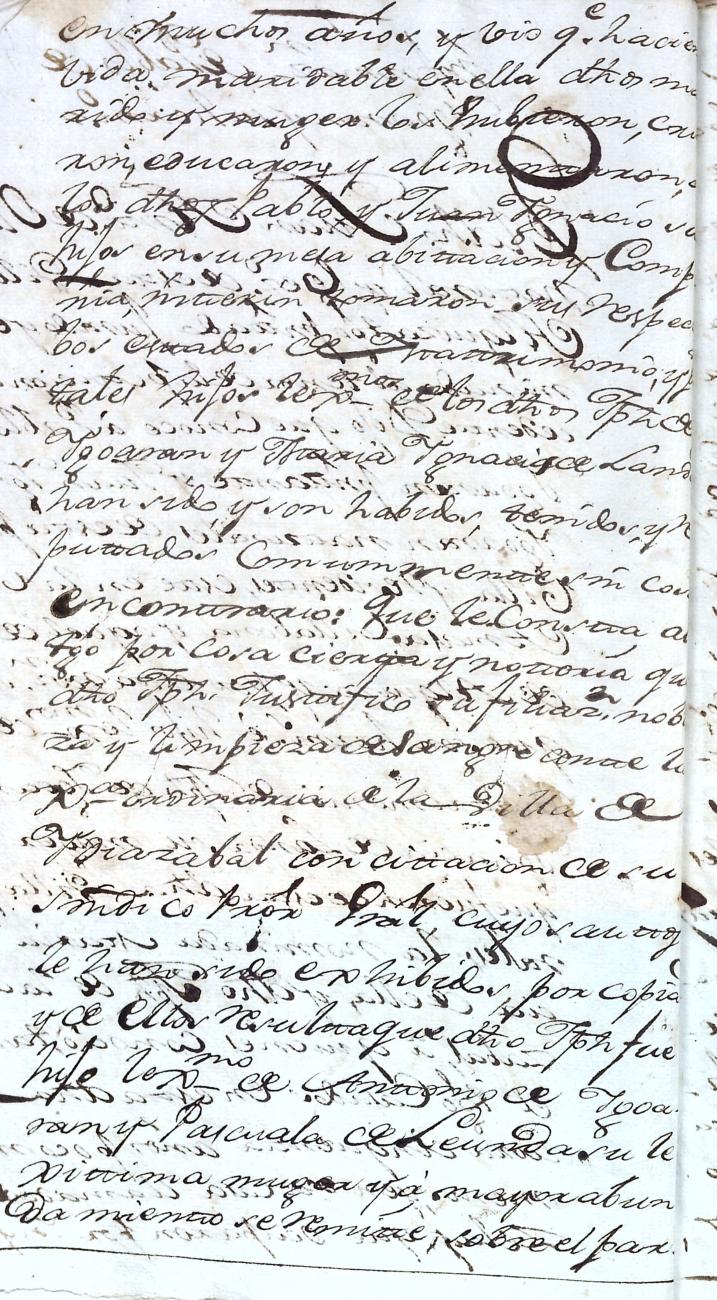 en muchos años, y vio q.e hacien
vida maridable en ella dhos ma
rido y muger los hubieron, cria
ron, educaron, y alimentaron, a
los dhos Pablo, y Juan Ygnacio sus
hijos en su mesa abittacion y Comp
nia, mientrin tomaron sus respec
bos estados de Matrimonio, y p
tales hijos lexmos de los dhos Jph de
Ygoaran y Maria Ygnacia de Land
han sido, y son habidos, tenidos, y re
puttados Comunmente sin cosa
en conttrario: Que le Constta al
tgo por cosa cierta y nottoria que
dho Jph. Justtifico su filiaz.n noble
za y limpieza de sangre antte la
Jus.a ordinaria de la Villa de
Ydiazabal con cittacion de su
sindico Pror Gral, cuyos auttos
le han sido exhibidos, por copia
y de ellos resultta que dho Jph fue
hijo lexmo de Antonio de Ygoa
ran y Pascuala de Leunda su le
xittima muger y á mayor abun
damiento se remitte, sobre el par.